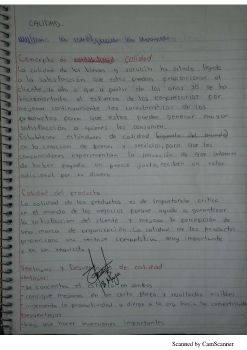 CALIDAD.
Concepto de calidad
La calidad de los bienes y servicios ha estado ligada
a la satisfacción que estos puedan proporcionar al
cliente, de ahí que a partir de los años 30 se ha
incrementado el esfuerzo de las empresas por
mejorar continuamente las características de los
productos para que estos puedan generar mayor
satisfacción a quienes los consumen.
Establecer estándares de calidad
en la creación de bienes y servicios, para que los
consumidores experimenten la sensación de que además
de haber pagado un precio justo, reciben un valor
adicional por su dinero.
Calidad del producto
La calidad de los productos es de importancia crítica
en el mundo de los negocios porque ayuda a garantizar
la satisfacción del cliente y mejora la percepción de
una marca de organización. La calidad de los productos
proporciona una ventaja competitiva muy importante
y es un requisito
Ventajas y de calidad
Ventajas
se concentra el en ambos
consigue mejoras en corto plazo y resultados visibles
incrementa la productividad, y dirige a la org. hacia la competitividad
Desventajas
Hay que hacer inversiones importantes
Scanned by CamScanner